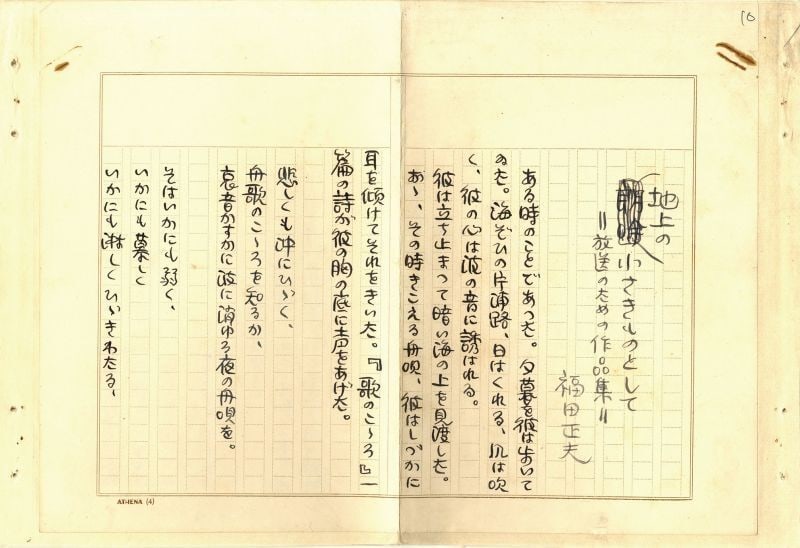 10
地上の小さきものとして
=放送のための作品集=
福田正夫
ある時のことであつた。夕暮を彼は歩いて
ゐた。海ぞひの片浦路、日はくれる、風は吹
く、彼の心は波の音に誘はれる。
彼は立ち止まつて暗い海の上を見渡した。
あゝ、その時きこえる舟唄、彼はしづかに
耳を傾けてそれをきいた。『歌のこゝろ』一
篇の詩が彼の胸の底に声をあげた。
悲しくも沖にひゞく、
舟歌のこゝろを知るか、
哀音かすかに波に消ゆる夜の舟唄を。
そはいかにも弱く、
いかにも慕しく
いかにも淋しくひゞきわたる、
ATHENA (4)